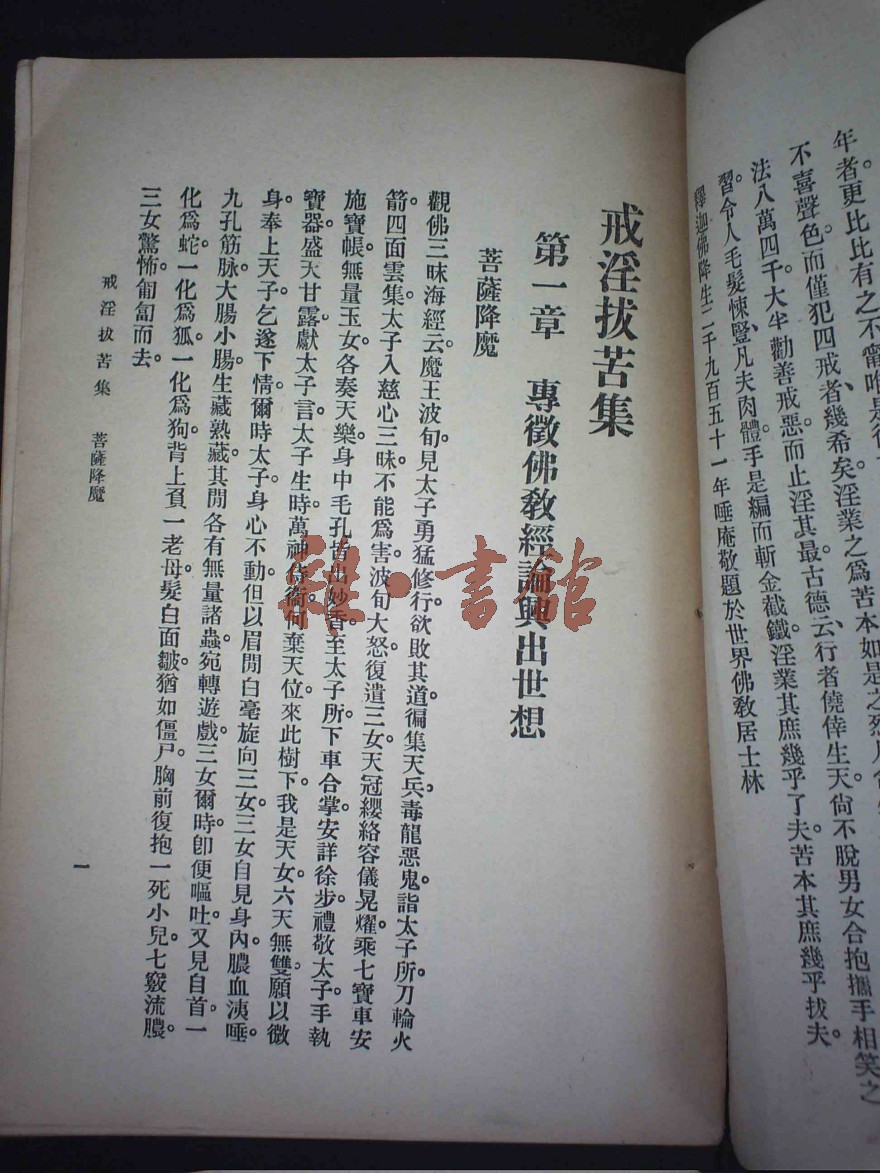 年者更比比有之不甯唯是
不喜聲色而僅犯四戒者幾希矣淫業之爲苦本如是之烈
法八萬四千大半勸善戒惡而止淫其最古德云行者僥倖生天尙不脫男女合抱攜手相笑之
習。令人毛髮悚豎、凡夫肉體。手是編而斬金截鐵。淫業其庶幾乎了夫。苦本其庶幾乎拔夫。
釋迦佛降生二千九百五十一年唾庵敬題於世界佛敎居士林
戒淫拔苦集
第一章 專徵佛敎經論興出世想
菩薩降魔
觀佛三昧海經云魔王波旬見太子勇猛修行欲敗其道徧集天兵毒龍惡鬼。詣太子所。刀輪火
箭。四面雲集。太子入慈心三昧。不能爲害。波旬大怒。復遣三女。天冠纓絡。容儀晃燿。乘七寶車。安
施寶帳。無量玉女。各奏天樂。身中毛孔。皆出妙香。至太子所。下車合掌。安詳徐步。禮敬太子。手執
寶器。盛天甘露。獻太子言。太子生時。萬神侍衞。何棄天位。來此樹下。我是天女。六天無雙。願以微
身。奉上天子。乞遂下情。爾時太子。身心不動。但以眉閒白毫。旋向三女。三女自見身內。膿血洟唾。
九孔筋脉。大腸小腸。生藏熟藏。其閒各有無量諸蟲。宛轉遊戲。三女爾時卽便嘔吐。又見自首。一
化爲蛇。一化爲狐。一化爲狗。背上負一老母。髮白面皺。猶如僵尸。胸前復抱一死小兒。七竅流膿。
三女驚怖。匍匐而去。
戒淫拔苦集 菩薩降魔
一
雜·書館